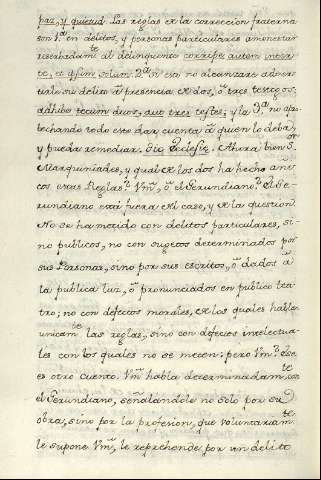 paz, y quietud. Las reglas de la correccion fraterna
son 1.ª en delitos, y personas particulares amonestar
reserbadam.te al delinquente corripe autem inter
te, et ipsum solum: 2.ª si esto no alcanzare adver-
tirle su delito â presencia de dos, ô tres testigos:
adhibe tecum duos, aut tres testes; y la 3.ª no apro-
bechando todo esto dar cuenta â quien lo deba,
y pueda remediar. Dic Eclesiæ. Ahora bien S.or
Marquiniades, y qual de los dos ha hecho ani-
cos estas Reglas? Vm.d, ô el Gerundiano? El Ge-
rundiano está fuera del caso, y de la question.
No se ha metido con delitos particulares, si-
no publicos, no con sugetos determinados por
sus Personas, sino por sus escritos, ô dados â
la publica luz, ô pronunciados en publico tea-
tro; no con defectos morales, de los quales hablan
unicam.te las reglas, sino con defectos intelectua-
les con los quales no se meten: pero Vm.d? Ese
es otro cuento. Vm.d habla determinadam.te con
el Gerundiano, señalandole no solo por su
obra, sino por la profesion, que voluntariam.te
le supone Vm.d, le reprehende por un delito